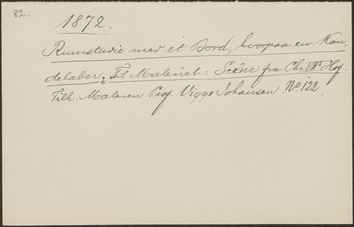 82.
1872.
Rumstudie med et Bord, hvorpaa en Kan-
delaber. Til Maleriet: Scene fra Chr. IV's Hof
Till. Maleren Prof. Viggo Johansen No. 122.